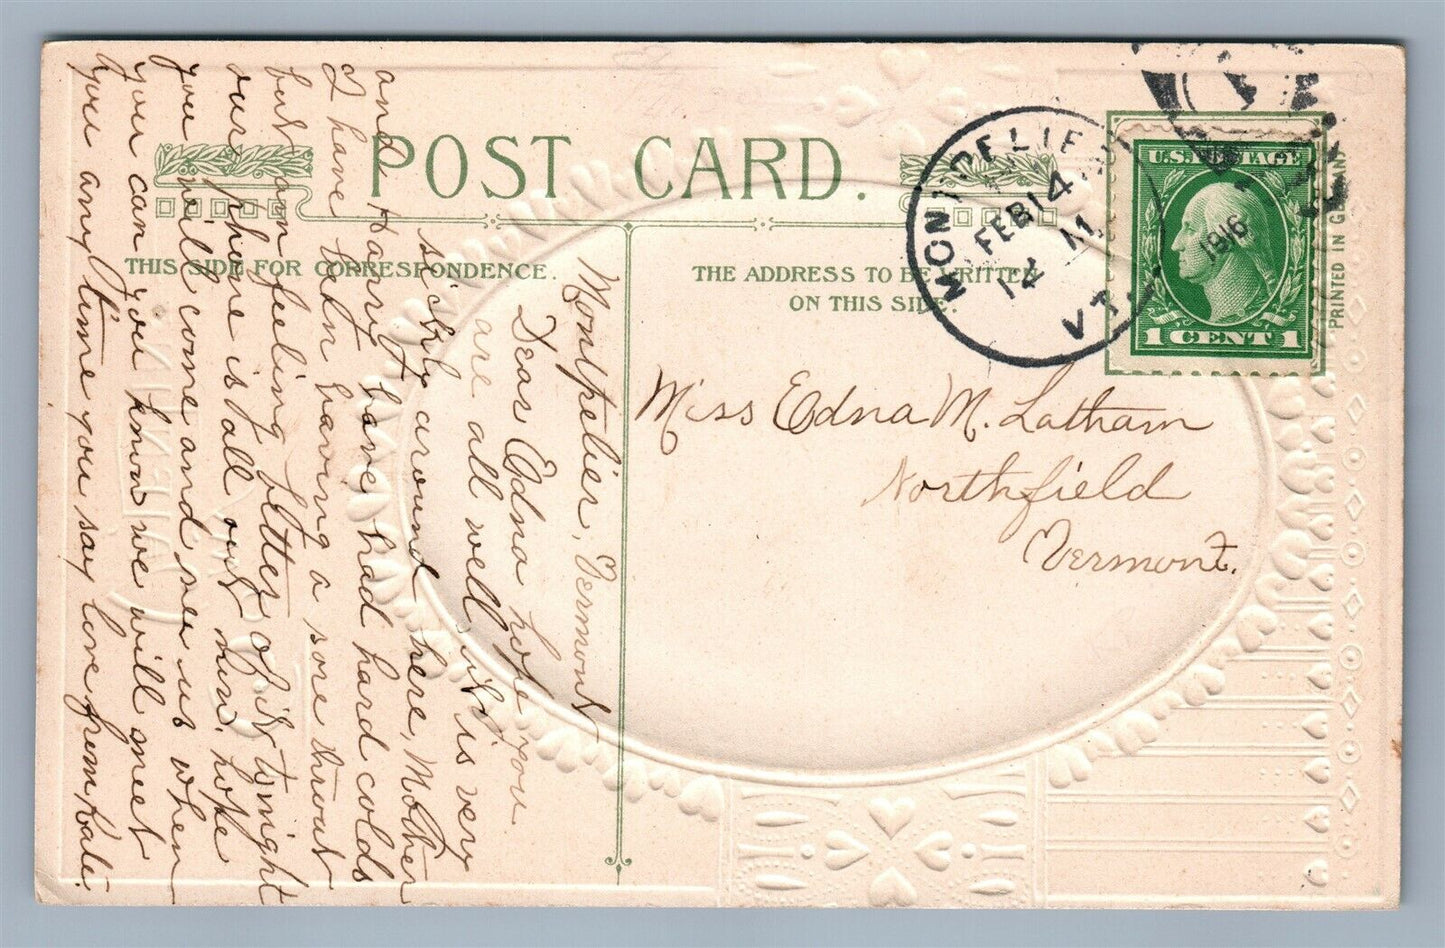 POST CARD.
THIS SIDE FOR CORRESPONDENCE.
THE ADDRESS TO BE WRITTEN
ON THIS SIDE.
MONTPELIER
FEB 14
12 M
1916
VT.
U.S. POSTAGE
1 CENT 1
PRINTED IN GERMANY
Miss Edna M. Latham
Northfield
Vermont.
Montpelier, Vermont
Dear Edna hope you
are all well, it is very
sickly around here, Mother
and Harry have had hard colds
I have been having a sore throat
but am feeling better to-night
our phone is all out now, hope
you will come and see us when
you can you know we will meet
you any time you say love from Kate.